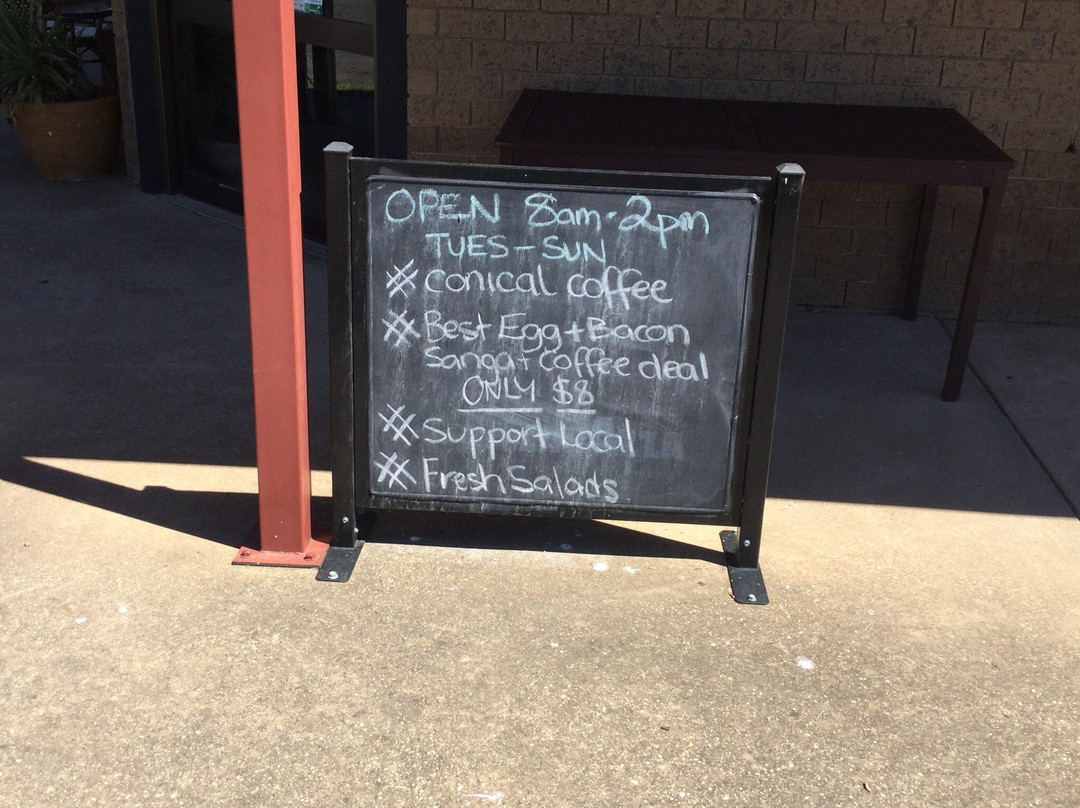 OPEN 8am-2pm
TUES-SUN
# Conical coffee
# Best Egg + Bacon
Sanga + coffee deal
ONLY $8
# Support Local
# Fresh Salads